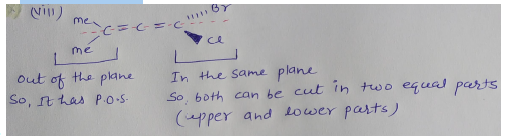 (viii)
me
C=C=C
Br
me
Cl
out of the plane
So, It has P.O.S.
In the same plane
So, both can be cut in two equal parts
(upper and lower parts)